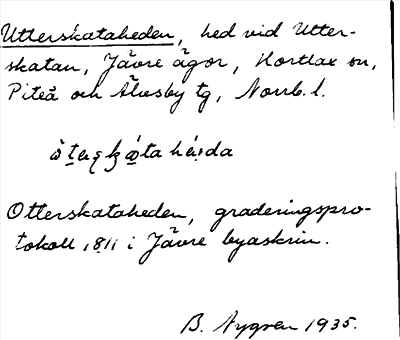 Utterskataheden, hed vid Utter-
skatan, Jävre ägor, Hortlax sn,
Piteå och Älvsby tg, Norrb. l.
Otterskataheden, graderingspro-
tokoll 1811 i Jävre byaskrin.
B. Nygren 1935.